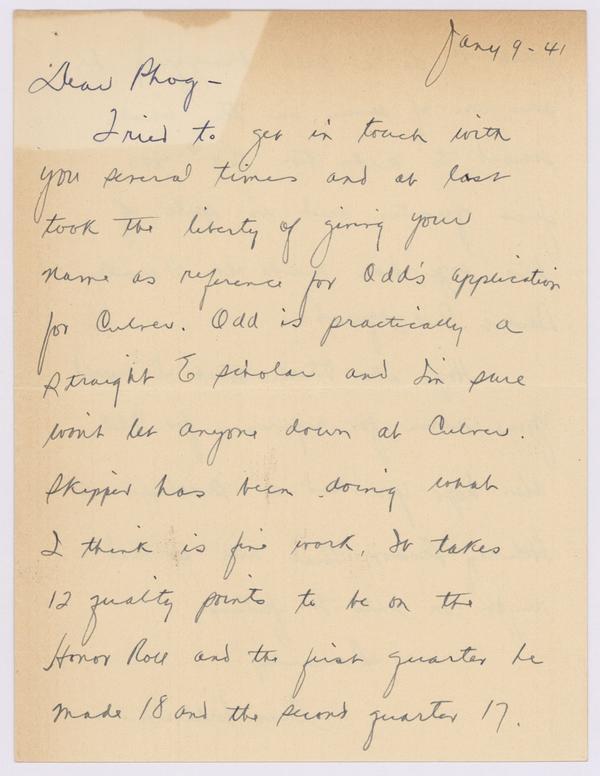 Jany 9 - 41
Dear Phog -
Tried to get in touch with
you several times and at last
took the liberty of giving your
name as reference for Odd's application
for Culver. Odd is practically a
straight E scholar and I'm sure
won't let anyone down at Culver.
Skipper has been doing what
I think is fine work. It takes
12 quality points to be on the
Honor Roll and the first quarter he
made 18 and the second quarter 17.